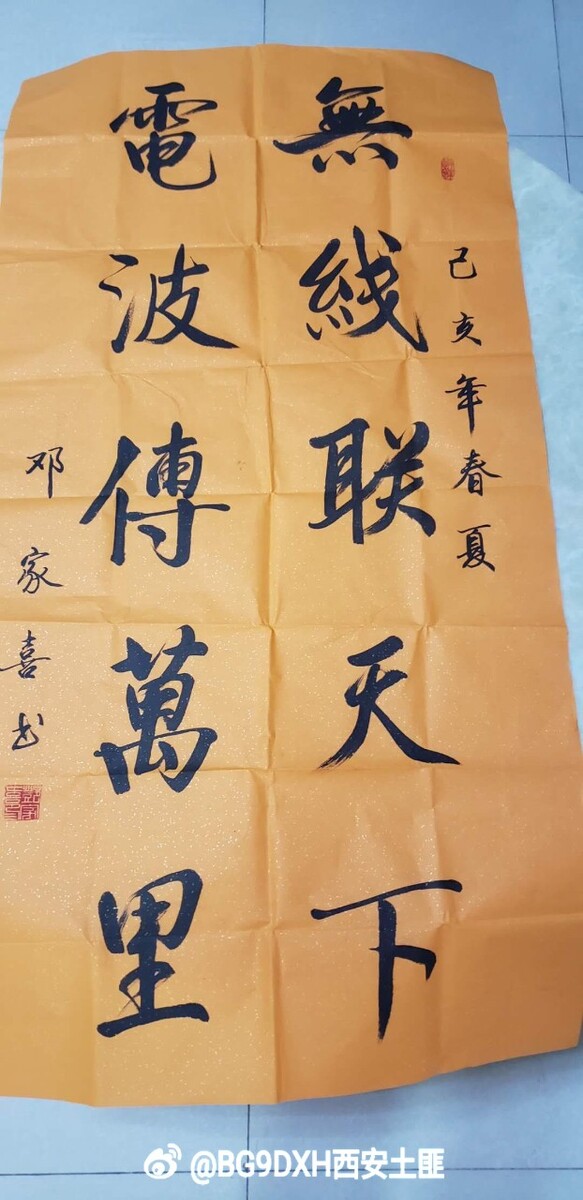 己亥年春夏
無线联天下
電波傳萬里
邓家喜书
@BG9DXH西安土匪